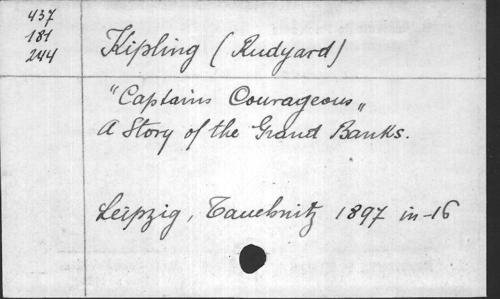 437
181
244
Kipling (Rudyard)
"Captains Courageous„
A Story of the Grand Banks.
Leipzig, Tauchnitz 1897 in-16